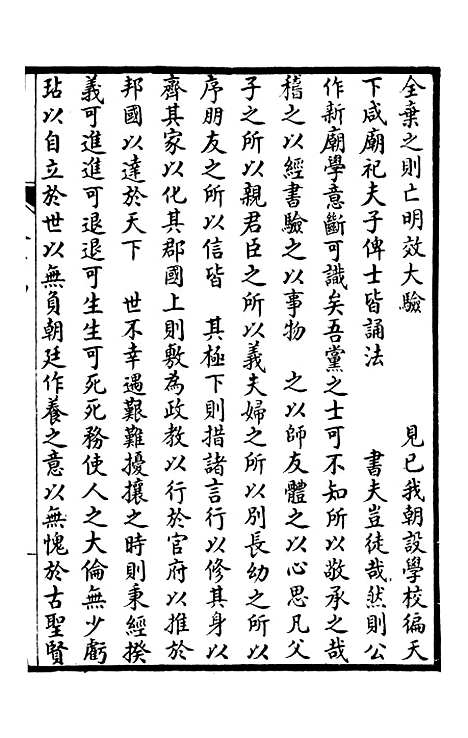 全棄之則亡明效大驗　　　見已我朝設學校徧天
下咸廟祀夫子俾士皆誦法　　　書夫豈徒哉然則公
作新廟學意斷可識矣吾黨之士可不知所以敬承之哉
稽之以經書驗之以事物　之以師友體之以心思凡父
子之所以親君臣之所以義夫婦之所以別長幼之所以
序朋友之所以信皆　其極下則措諸言行以修其身以
齊其家以化其郡國上則敷為政教以行於官府以推於
邦國以達於天下　世不幸遇艱難擾攘之時則秉經揆
義可進進可退退可生生可死死務使人之大倫無少虧
玷以自立於世以無負朝廷作養之意以無愧於古聖賢